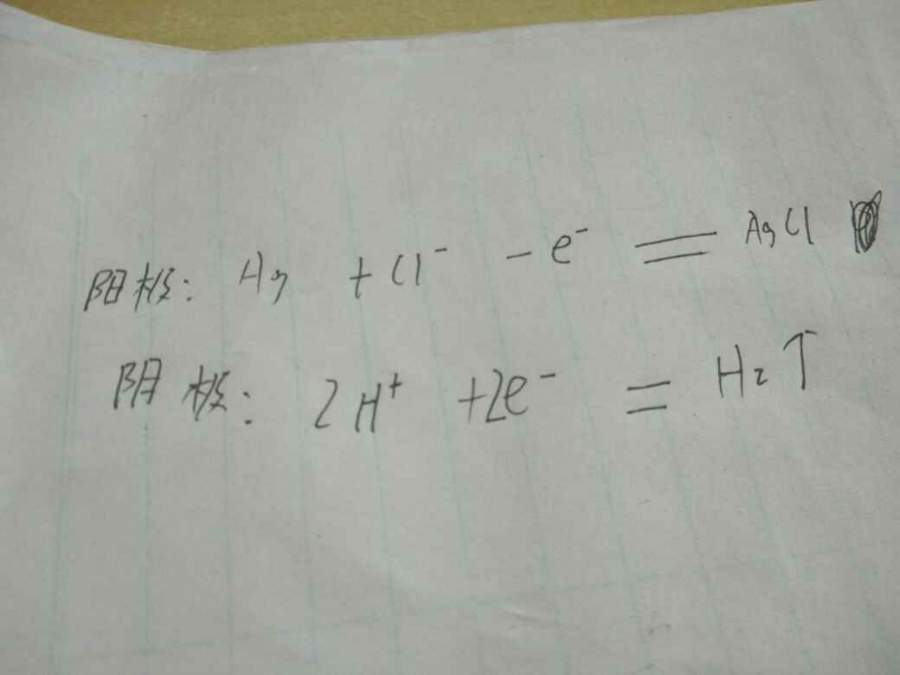 阳极: Ag + Cl⁻ - e⁻ = AgCl
阴极: 2H⁺ +2e⁻ = H₂↑